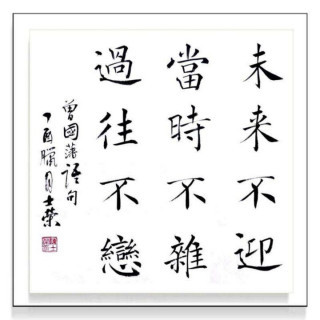 未来不迎
當時不雜
過往不戀
曾國藩語句
丁酉臘月士榮